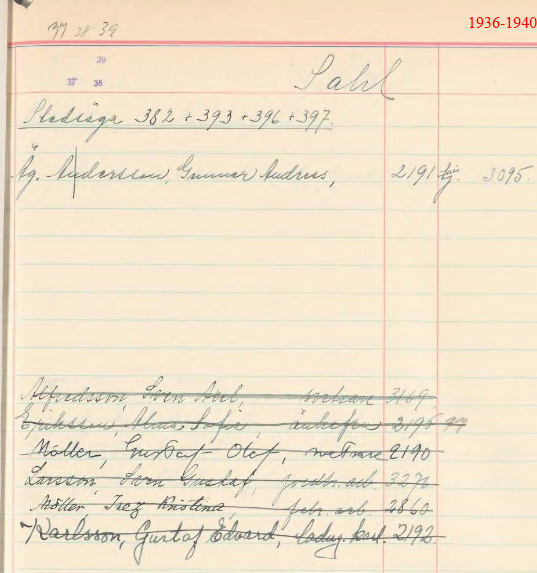 37 28 39
1936-1940
39
37 38
Sahl
Stadsäga 382 + 393 + 396 + 397.
Äg. Andersson, Gunnar Andreas, 2191 3095.
Alfredsson, Sven Axel, 3169
Eriksson, Alma Sofia, änkefru 2195 97
Möller, Gustaf Olof, 2190
Larsson, Sven Gustaf, jordbr. arb. 3271
Möller, Inez Kristina, fabr. arb. 2860
Karlsson, Gustaf Edvard, ladug. karl. 2192.